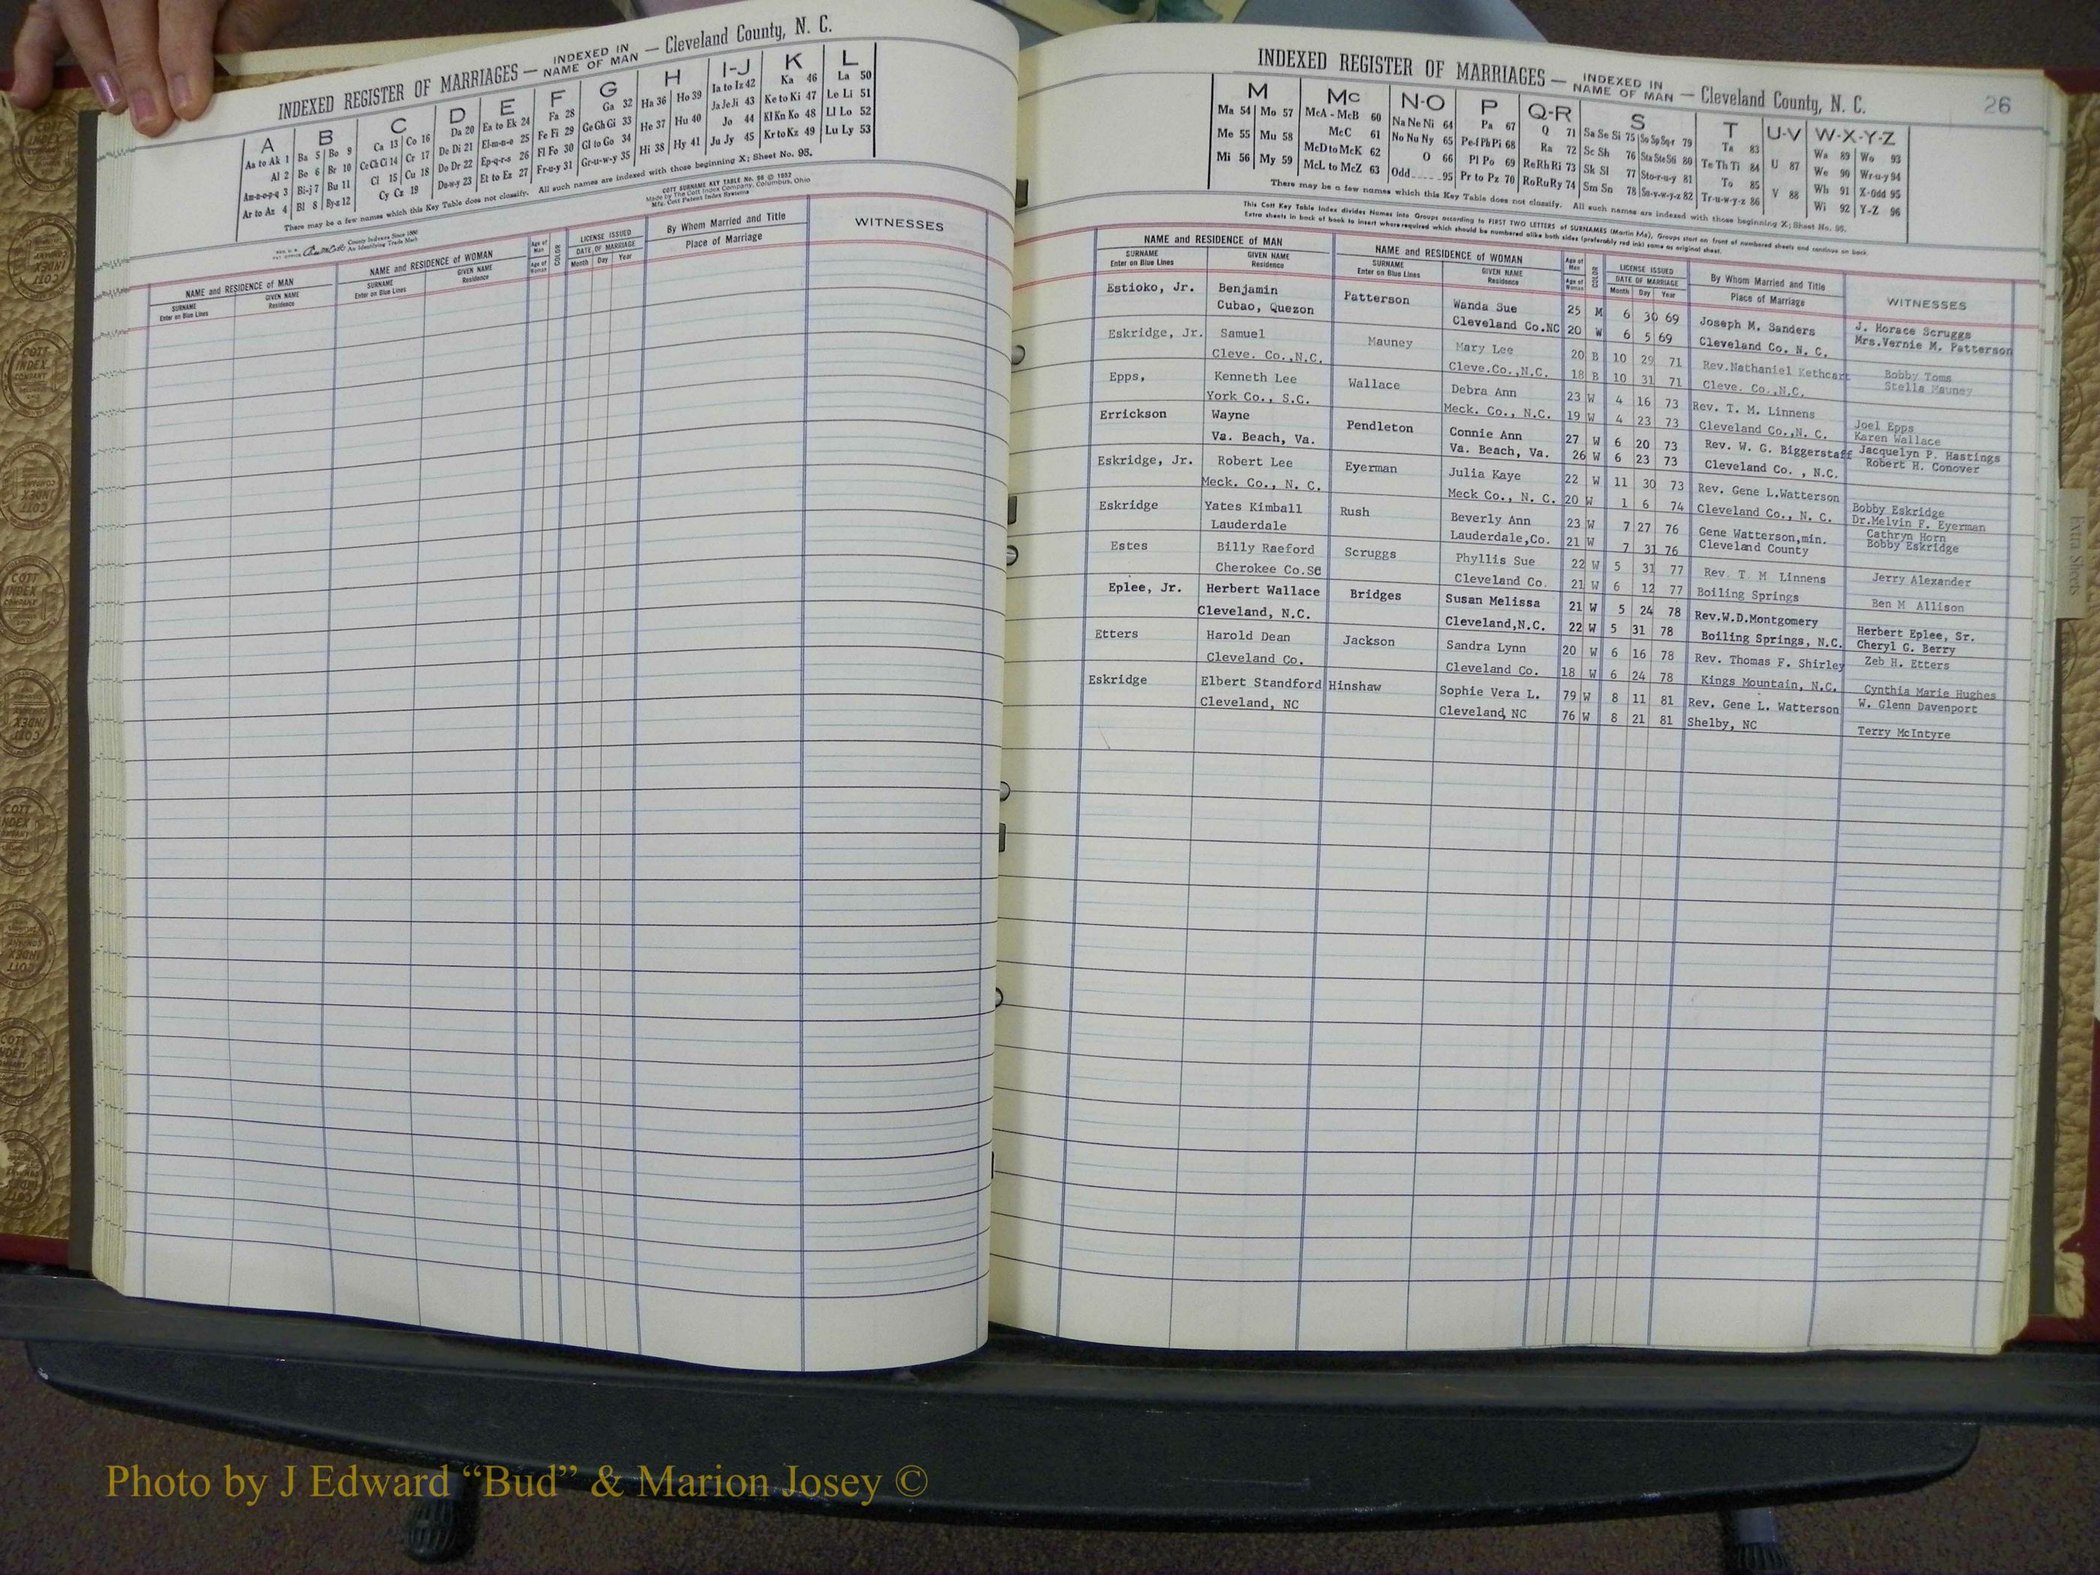 INDEXED REGISTER OF MARRIAGES — INDEXED IN NAME OF MAN — Cleveland County, N. C.
A B C D E F G H I-J K L
Aa to Ak 1 Ba 5 Bo 9 Ca 13 Co 16 Da 20 Ea to Ek 24 Fa 28 Ga 32 Ha 36 Ho 39 Ia to Iz 42 Ka 46 La 50
Al 2 Be 6 Br 10 Ce Ch Ci 14 Cr 17 De Di 21 El-m-n-o 25 Fe Fi 29 Ge Gh Gi 33 He 37 Hu 40 Ja Je Ji 43 Ke to Ki 47 Le Li 51
Am-n-o-p-q 3 Bi-j 7 Bu 11 Cl 15 Cu 18 Do Dr 22 Ep-q-r-s 26 Fl Fo 30 Gl to Go 34 Hi 38 Hy 41 Jo 44 Kl Kn Ko 48 Ll Lo 52
Ar to Az 4 Bl 8 By-z 12 Cy Cz 19 Du-w-y 23 Et to Ez 27 Fr-u-y 31 Gr-u-w-y 35 Ju Jy 45 Kr to Kz 49 Lu Ly 53
There may be a few names which this Key Table does not classify. All such names are indexed with those beginning X; Sheet No. 95.
COTT SURNAME KEY TABLE No. 96 © 1932
Made by The Cott Index Company, Columbus, Ohio
Mfg. Cott Patent Index Systems
County Indexes Since 1888
An Identifying Trade Mark
NAME and RESIDENCE of MAN
SURNAME
Enter on Blue Lines
GIVEN NAME
Residence
NAME and RESIDENCE of WOMAN
SURNAME
Enter on Blue Lines
GIVEN NAME
Residence
Age of Man
Age of Woman
COLOR
LICENSE ISSUED
DATE OF MARRIAGE
Month Day Year
By Whom Married and Title
Place of Marriage
WITNESSES
INDEXED REGISTER OF MARRIAGES — INDEXED IN NAME OF MAN — Cleveland County, N. C.
26
M Mc N-O P Q-R S T U-V W-X-Y-Z
Ma 54 Mo 57 McA - McB 60 Na Ne Ni 64 Pa 67 Q 71 Sa Se Si 75 So Sp Sq-r 79 Ta 83 U 87 Wa 89 Wo 93
Me 55 Mu 58 McC 61 No Nu Ny 65 Pe-f Ph Pi 68 Ra 72 Sc Sh 76 Sta Ste Sti 80 Te Th Ti 84 V 88 We 90 Wr-u-y 94
Mi 56 My 59 McD to McK 62 O 66 Pl Po 69 Re Rh Ri 73 Sk Sl 77 Sto-r-u-y 81 To 85 Wh 91 X-Odd 95
McL to McZ 63 Odd 95 Pr to Pz 70 Ro Ru Ry 74 Sm Sn 78 Su-v-w-y-z 82 Tr-u-w-y-z 86 Wi 92 Y-Z 96
There may be a few names which this Key Table does not classify. All such names are indexed with those beginning X; Sheet No. 95.
This Cott Key Table Index divides Names into Groups according to FIRST TWO LETTERS of SURNAMES (Martin Ma), Groups start on front of numbered sheets and continue on back.
Extra sheets in back of book to insert where required which should be numbered alike both sides (preferably red ink) same as original sheet.
NAME and RESIDENCE of MAN
SURNAME
Enter on Blue Lines
GIVEN NAME
Residence
NAME and RESIDENCE of WOMAN
SURNAME
Enter on Blue Lines
GIVEN NAME
Residence
Age of Man
Age of Woman
COLOR
LICENSE ISSUED
DATE OF MARRIAGE
Month Day Year
By Whom Married and Title
Place of Marriage
WITNESSES
Estioko, Jr. Benjamin Patterson Wanda Sue 25 M 6 30 69 Joseph M. Sanders J. Horace Scruggs
Cubao, Quezon Cleveland Co.NC 20 W 6 5 69 Cleveland Co. N. C. Mrs.Vernie M. Patterson
Eskridge, Jr. Samuel Mauney Mary Lee 20 B 10 29 71 Rev.Nathaniel Kethcart Bobby Toms
Cleve. Co.,N.C. Cleve.Co.,N.C. 18 B 10 31 71 Cleve. Co.,N.C. Stella Mauney
Epps, Kenneth Lee Wallace Debra Ann 23 W 4 16 73 Rev. T. M. Linnens Joel Epps
York Co., S.C. Meck. Co., N.C. 19 W 4 23 73 Cleveland Co.,N. C. Karen Wallace
Errickson Wayne Pendleton Connie Ann 27 W 6 20 73 Rev. W. G. Biggerstaff Jacquelyn P. Hastings
Va. Beach, Va. Va. Beach, Va. 26 W 6 23 73 Cleveland Co. , N.C. Robert H. Conover
Eskridge, Jr. Robert Lee Eyerman Julia Kaye 22 W 11 30 73 Rev. Gene L.Watterson Bobby Eskridge
Meck. Co., N. C. Meck Co., N. C. 20 W 1 6 74 Cleveland Co., N. C. Dr.Melvin F. Eyerman
Eskridge Yates Kimball Rush Beverly Ann 23 W 7 27 76 Gene Watterson,min. Cathryn Horn
Lauderdale Lauderdale,Co. 21 W 7 31 76 Cleveland County Bobby Eskridge
Estes Billy Raeford Scruggs Phyllis Sue 22 W 5 31 77 Rev. T. M Linnens Jerry Alexander
Cherokee Co.Sc Cleveland Co. 21 W 6 12 77 Boiling Springs Ben M Allison
Eplee, Jr. Herbert Wallace Bridges Susan Melissa 21 W 5 24 78 Rev.W.D.Montgomery Herbert Eplee, Sr.
Cleveland, N.C. Cleveland,N.C. 22 W 5 31 78 Boiling Springs, N.C. Cheryl G. Berry
Etters Harold Dean Jackson Sandra Lynn 20 W 6 16 78 Rev. Thomas F. Shirley Zeb H. Etters
Cleveland Co. Cleveland Co. 18 W 6 24 78 Kings Mountain, N.C. Cynthia Marie Hughes
Eskridge Elbert Standford Hinshaw Sophie Vera L. 79 W 8 11 81 Rev. Gene L. Watterson W. Glenn Davenport
Cleveland, NC Cleveland, NC 76 W 8 21 81 Shelby, NC Terry McIntyre
Extra Sheets
Photo by J Edward “Bud” & Marion Josey ©